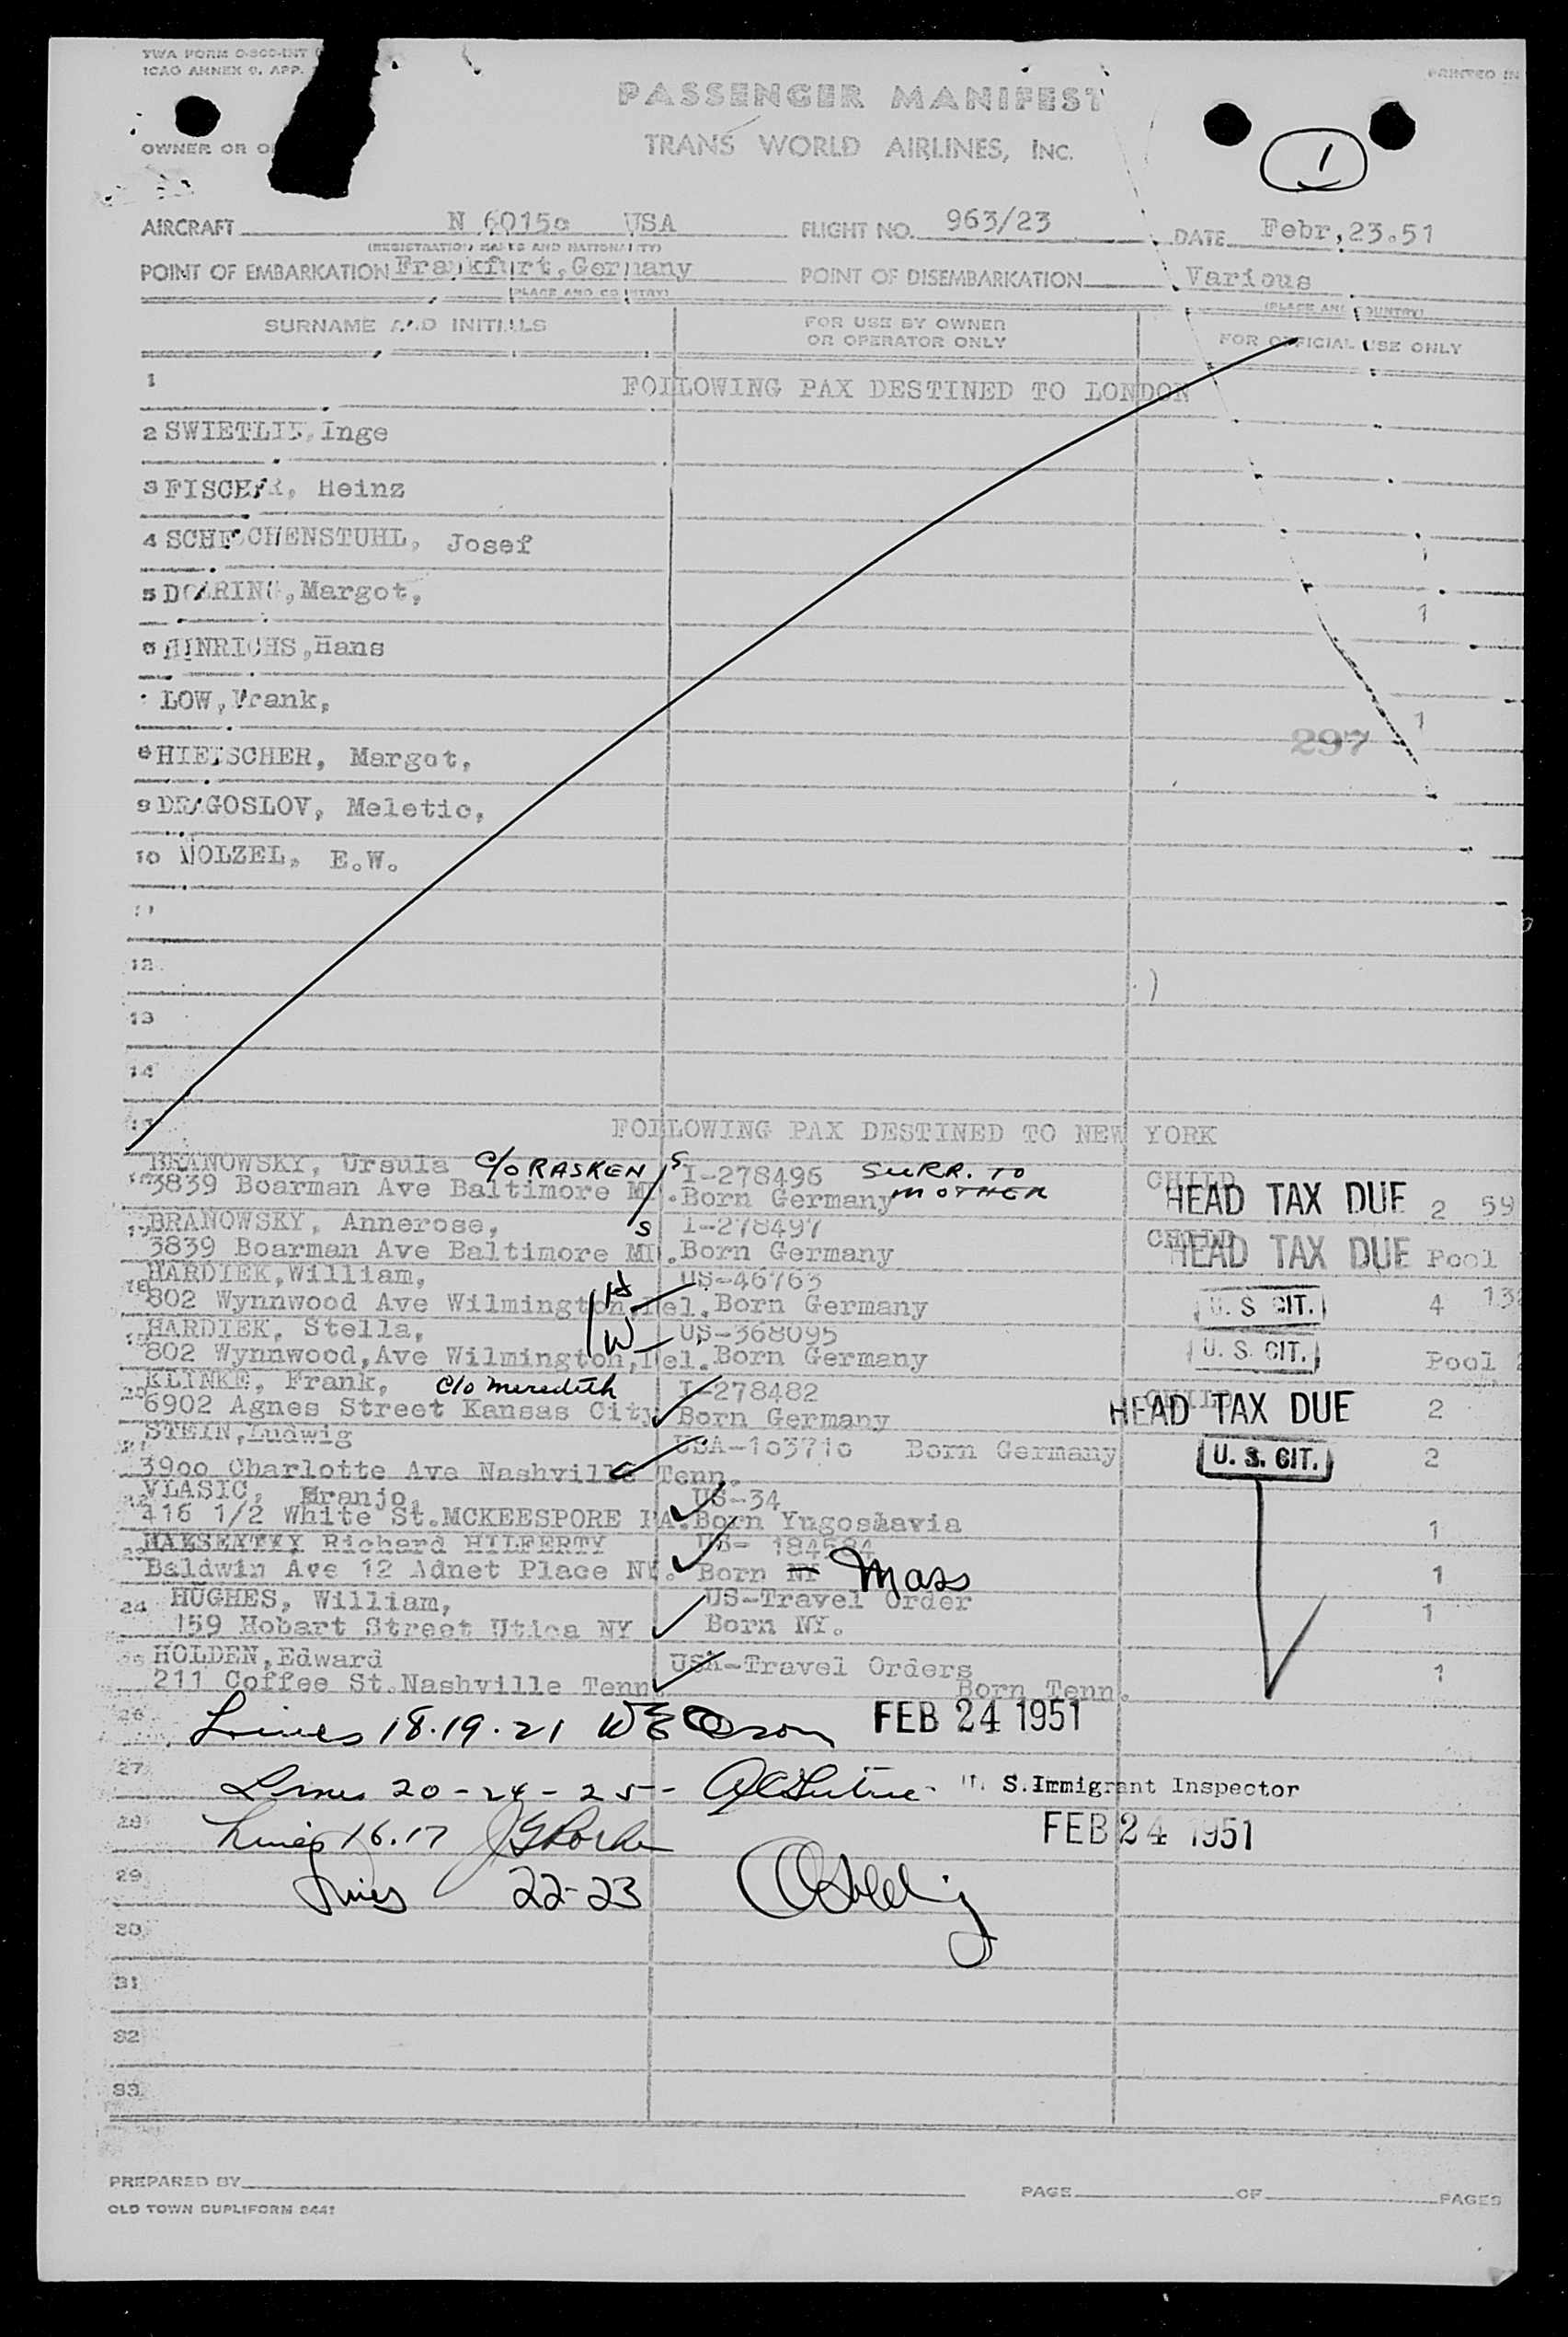 TWA FORM O-300-INT
ICAO ANNEX 9, APP.
PRINTED IN
PASSENGER MANIFEST
OWNER OR O
TRANS WORLD AIRLINES, INC.
1
AIRCRAFT N 6015c USA FLIGHT NO. 963/23 DATE Febr,23.51
(REGISTRATION MARKS AND NATIONALITY)
POINT OF EMBARKATION Frankfurt,Germany POINT OF DISEMBARKATION Various
(PLACE AND COUNTRY) (PLACE AND COUNTRY)
SURNAME AND INITIALS FOR USE BY OWNER OR OPERATOR ONLY FOR OFFICIAL USE ONLY
1 FOLLOWING PAX DESTINED TO LONDON
2 Inge
3 FISCHER, Heinz
4 Josef
1
5 Margot,
1
6 HINRICHS,Hans
LOW,Frank,
1
297
8 Margot,
9 DRAGOSLOV, Meletic,
10 E.W.
11
12
13
14
15 FOLLOWING PAX DESTINED TO NEW YORK
BRANOWSKY, Ursula c/o RASKEN S I-278496 SURR. TO MOTHER CHILD
3839 Boarman Ave Baltimore MD. Born Germany HEAD TAX DUE 2 59
BRANOWSKY, Annerose, S I-278497 CHILD
3839 Boarman Ave Baltimore MD. Born Germany HEAD TAX DUE Pool
HARDIEK,William, H US-46763
18 802 Wynnwood Ave Wilmington,Del. Born Germany U. S CIT. 4
HARDIEK, Stella, W US-368095
802 Wynnwood,Ave Wilmington,Del. Born Germany U. S. CIT. Pool
KLINKE, Frank, c/o Meredith I-278482 CHILD
20 6902 Agnes Street Kansas City Born Germany HEAD TAX DUE 2
STEIN,Ludwig USA-103710 Born Germany U. S. CIT. 2
3900 Charlotte Ave Nashville Tenn.
VLASIC, Franjo, US-34
416 1/2 White St.MCKEESPORE PA. Born Yugoslavia 1
Richard HILFERTY US- 184584
Baldwin Ave 12 Adnet Place NY. Born NY Mass 1
24 HUGHES, William, US-Travel Order 1
159 Hobart Street Utica NY Born NY.
25 HOLDEN,Edward USA-Travel Orders 1
211 Coffee St.Nashville Tenn. Born Tenn.
26 Lines 18.19.21 FEB 24 1951
27 Lines 20-24-25- U. S.Immigrant Inspector
28 Lines 16.17 FEB 24 1951
29 Lines 22-23
30
31
32
33
PREPARED BY PAGE OF PAGES
OLD TOWN DUPLIFORM 8441